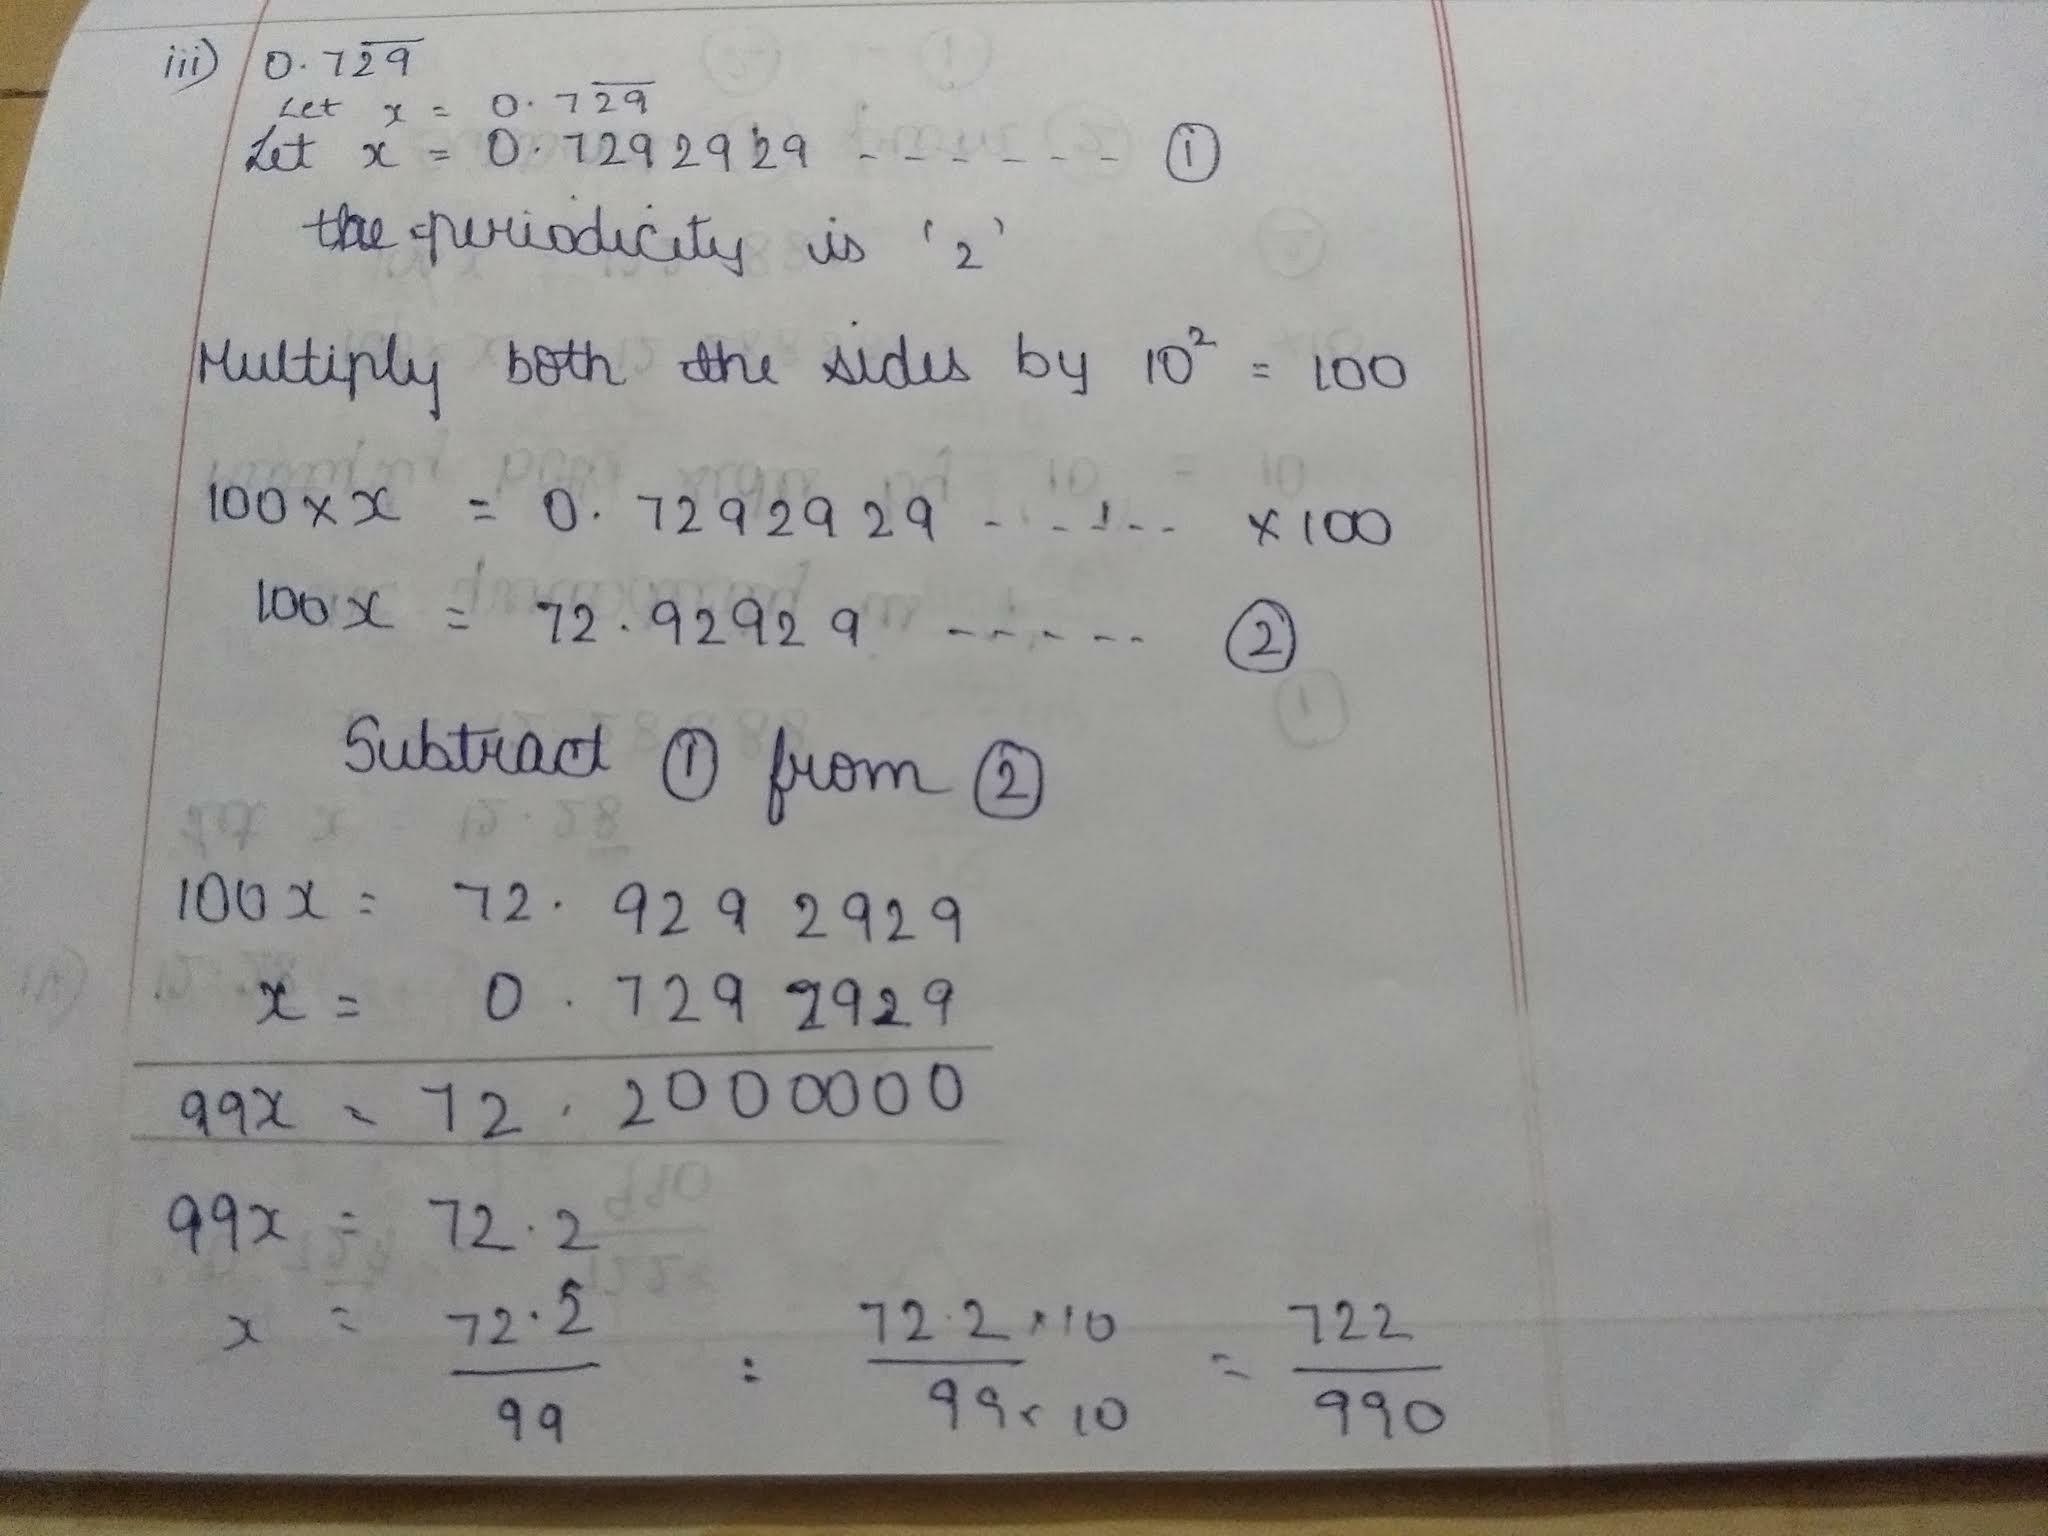 iii) 0.72̅9̅
Let x = 0.72̅9̅
Let x = 0.7292929 - - - - - - ①
the periodicity is '2'
Multiply both the sides by 10² = 100
100 × x = 0.7292929 - - - - - × 100
100x = 72.92929 - - - - - ②
Subtract ① from ②
100x = 72.9292929
x = 0.7292929
99x = 72.2000000
99x = 72.2
x = 72.2/99 = 72.2×10/99×10 = 722/990